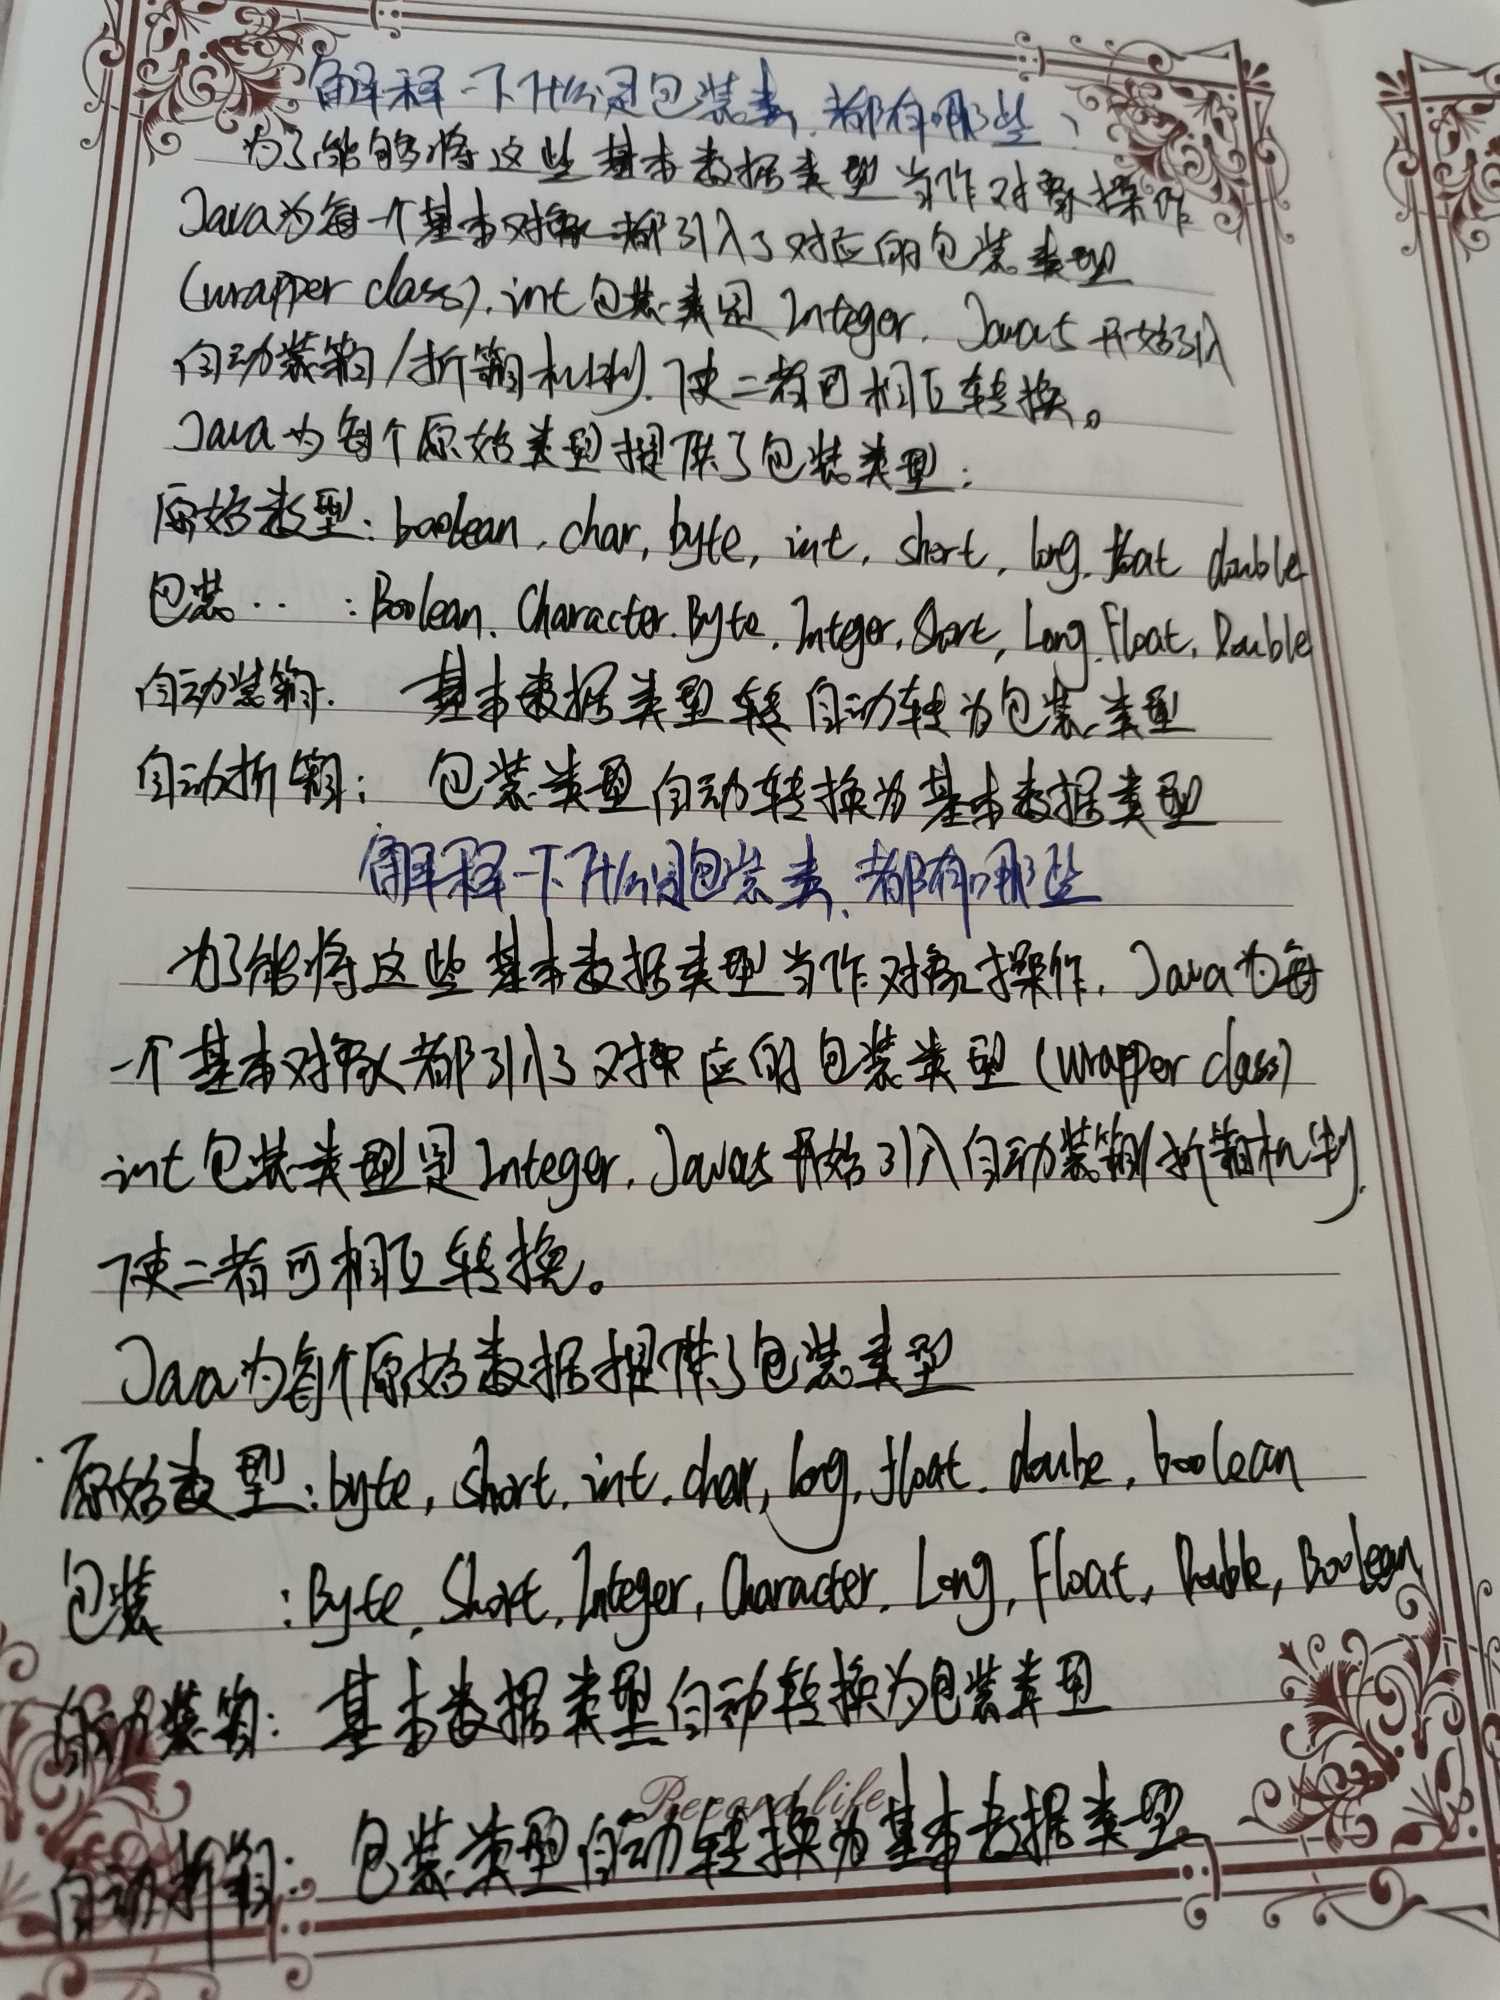 解释一下什么是包装类,都有哪些、
为了能够将这些基本数据类型当作对象操作
Java为每一个基本对象都引入了对应的包装类型
(wrapper class).int包装类是Integer. Java5开始引入
自动装箱/折箱机制.使二者可相互转换。
Java为每个原始类型提供了包装类型:
原始类型:boolean,char,byte,int,short,long,float double
包装‥ :Boolean.Character.Byte.Integer.Short,Long.Float.Double
自动装箱. 基本数据类型转自动转为包装类型
自动折箱: 包装类型自动转换为基本数据类型
解释一下什么是包装类、都有哪些
为了能将这些基本数据类型当作对象操作.Java为每
一个基本对象都引入了对应的包装类型(wrapper class)
int包装类型是Integer.Java5开始引入自动装箱/折箱机制.
使二者可相互转换。
Java为每个原始数据提供了包装类型
原始类型:byte,short.int.char,long.float.double,boolean
包装 :Byte.Short.Integer,Character.Long,Float,Double,Boolean
自动装箱:基本数据类型自动转换为包装类型
Record life
自动折箱: 包装类型自动转换为基本数据类型